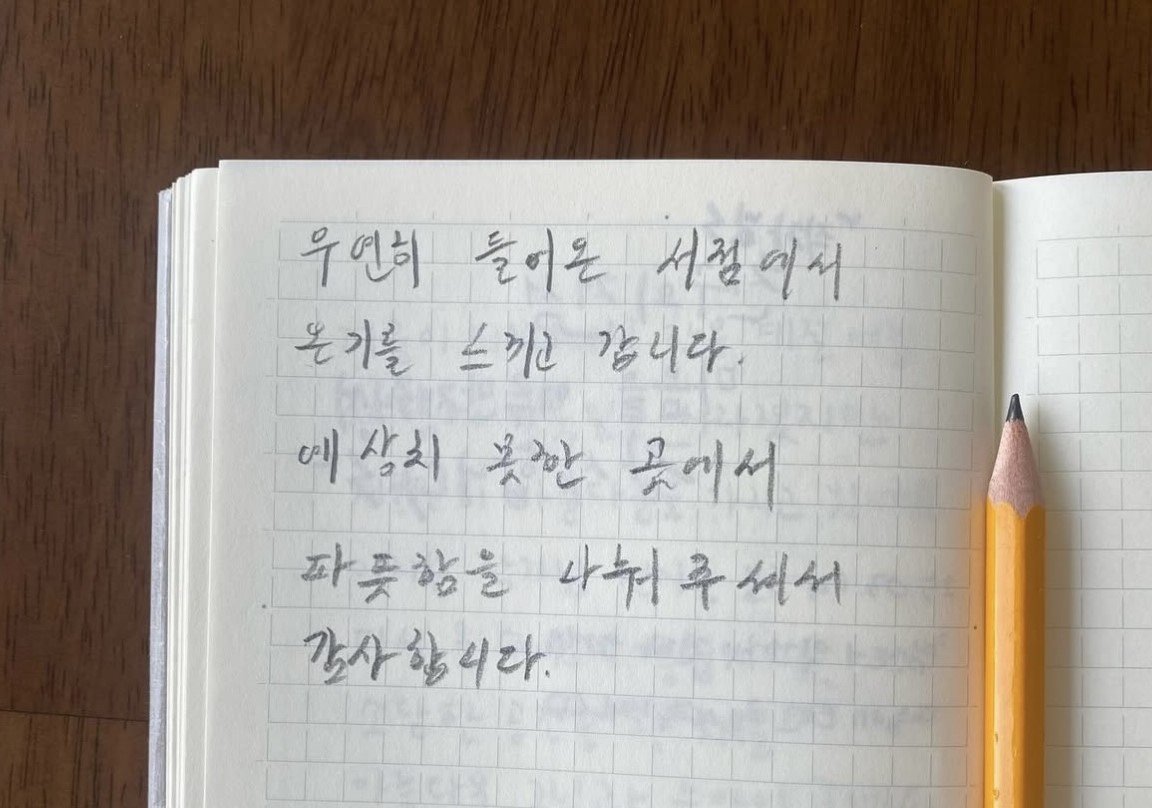 우연히 들어온 서점에서
온기를 느끼고 갑니다.
예상치 못한 곳에서
따뜻함을 나눠주셔서
감사합니다.